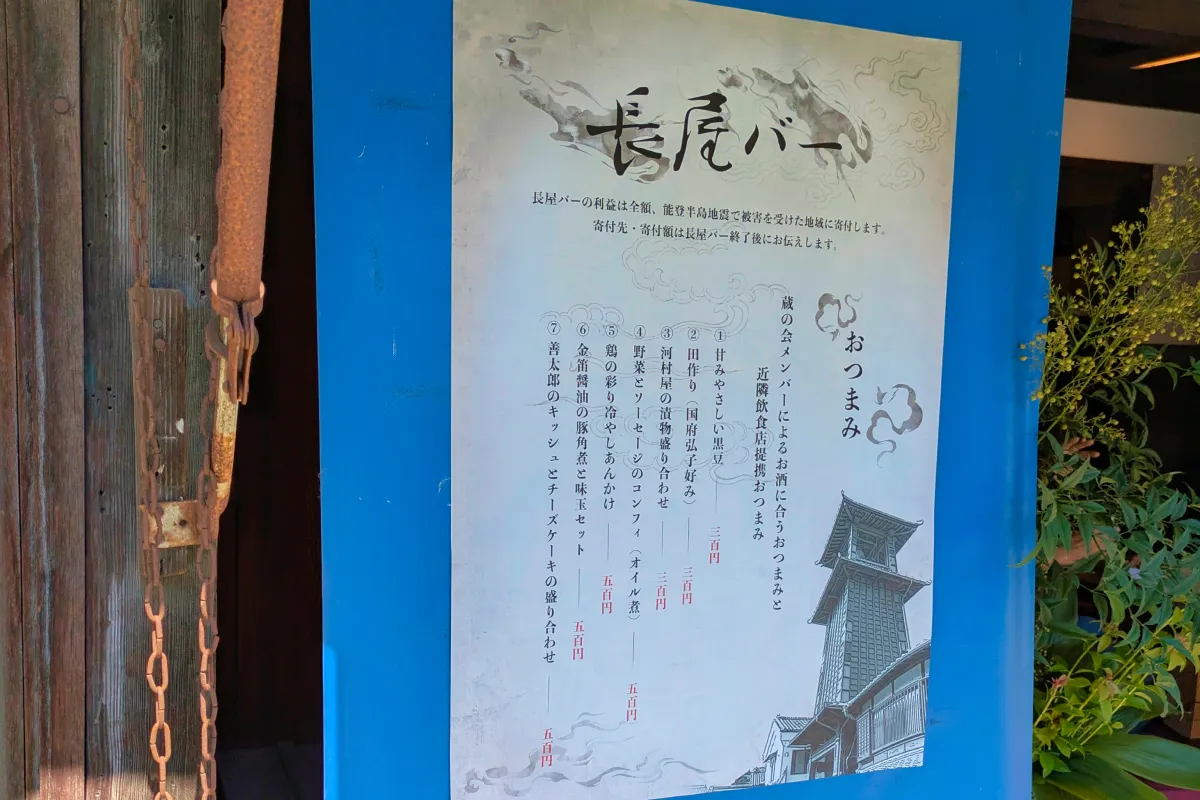 長屋バー
長屋バーの利益は全額、能登半島地震で被害を受けた地域に寄付します。
寄付先・寄付額は長屋バー終了後にお伝えします。
おつまみ
蔵の会メンバーによるお酒に合うおつまみと
近隣飲食店提携おつまみ
①甘みやさしい黒豆――三百円
②田作り（国府弘子好み）――三百円
③河村屋の漬物盛り合わせ――三百円
④野菜とソーセージのコンフィ（オイル煮）――五百円
⑤鶏の彩り冷やしあんかけ――五百円
⑥金笛醤油の豚角煮と味玉セット――五百円
⑦善太郎のキッシュとチーズケーキの盛り合わせ――五百円